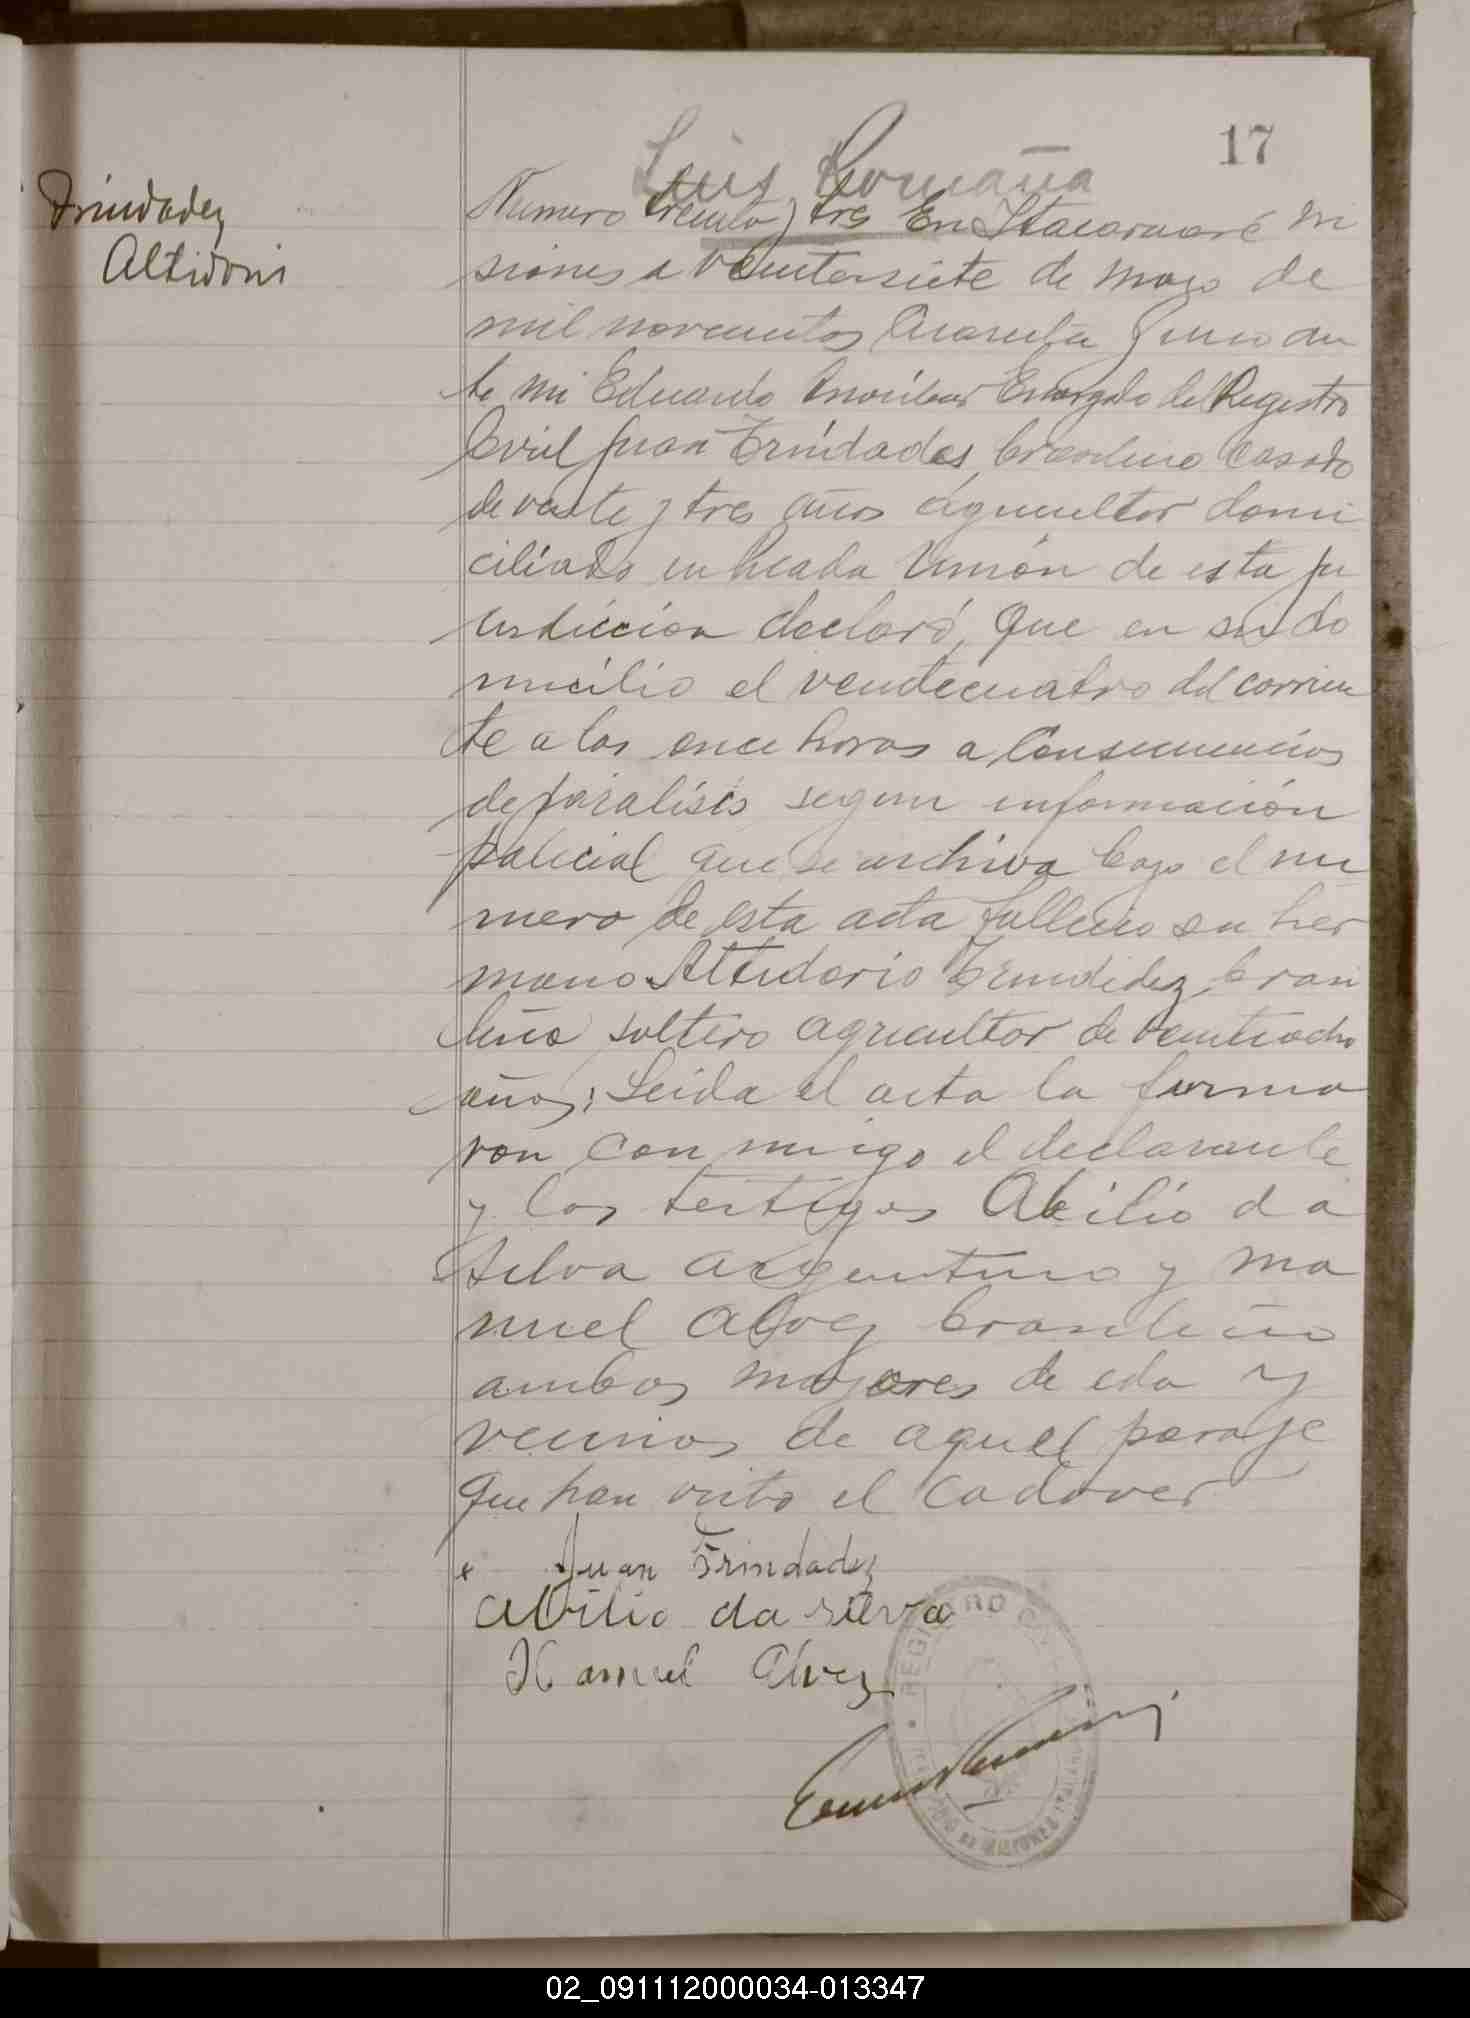 17
Luis Comaña
Trindadez
Altidoni
Numero treinta y tres En Itacaruaré Mi
siones a veintersiete de Mayo de
mil novecientos cuarenta y cinco an
te mi Eduardo Encargado del Registro
Civil Juan Trindades, brasileno casado
de veinte y tres años agricultor domi
ciliado en Picada Unión de esta ju
risdiccion declaró, Que en su do
micilio el veintecuatro del corrien
te a las once horas a consecuencias
de paralisis segun información
policial que se archiva bajo el nu
mero de esta acta fallecio su her
mano Altidorio Trindidez, brasi
leño soltero agricultor de veintiocho
años; Leida el acta la firma
ron conmigo el declarante
y los testigos Abilio da
silva argentino y Ma
nuel Alvez brasileño
ambos mayores de eda y
vecinos de aquel paraje
que han visto el cadaver
x Juan Trindadez
Abilio da silva
Manuel Alvez
REGISTRO CIVIL
MISIONES
02_091112000034-013347